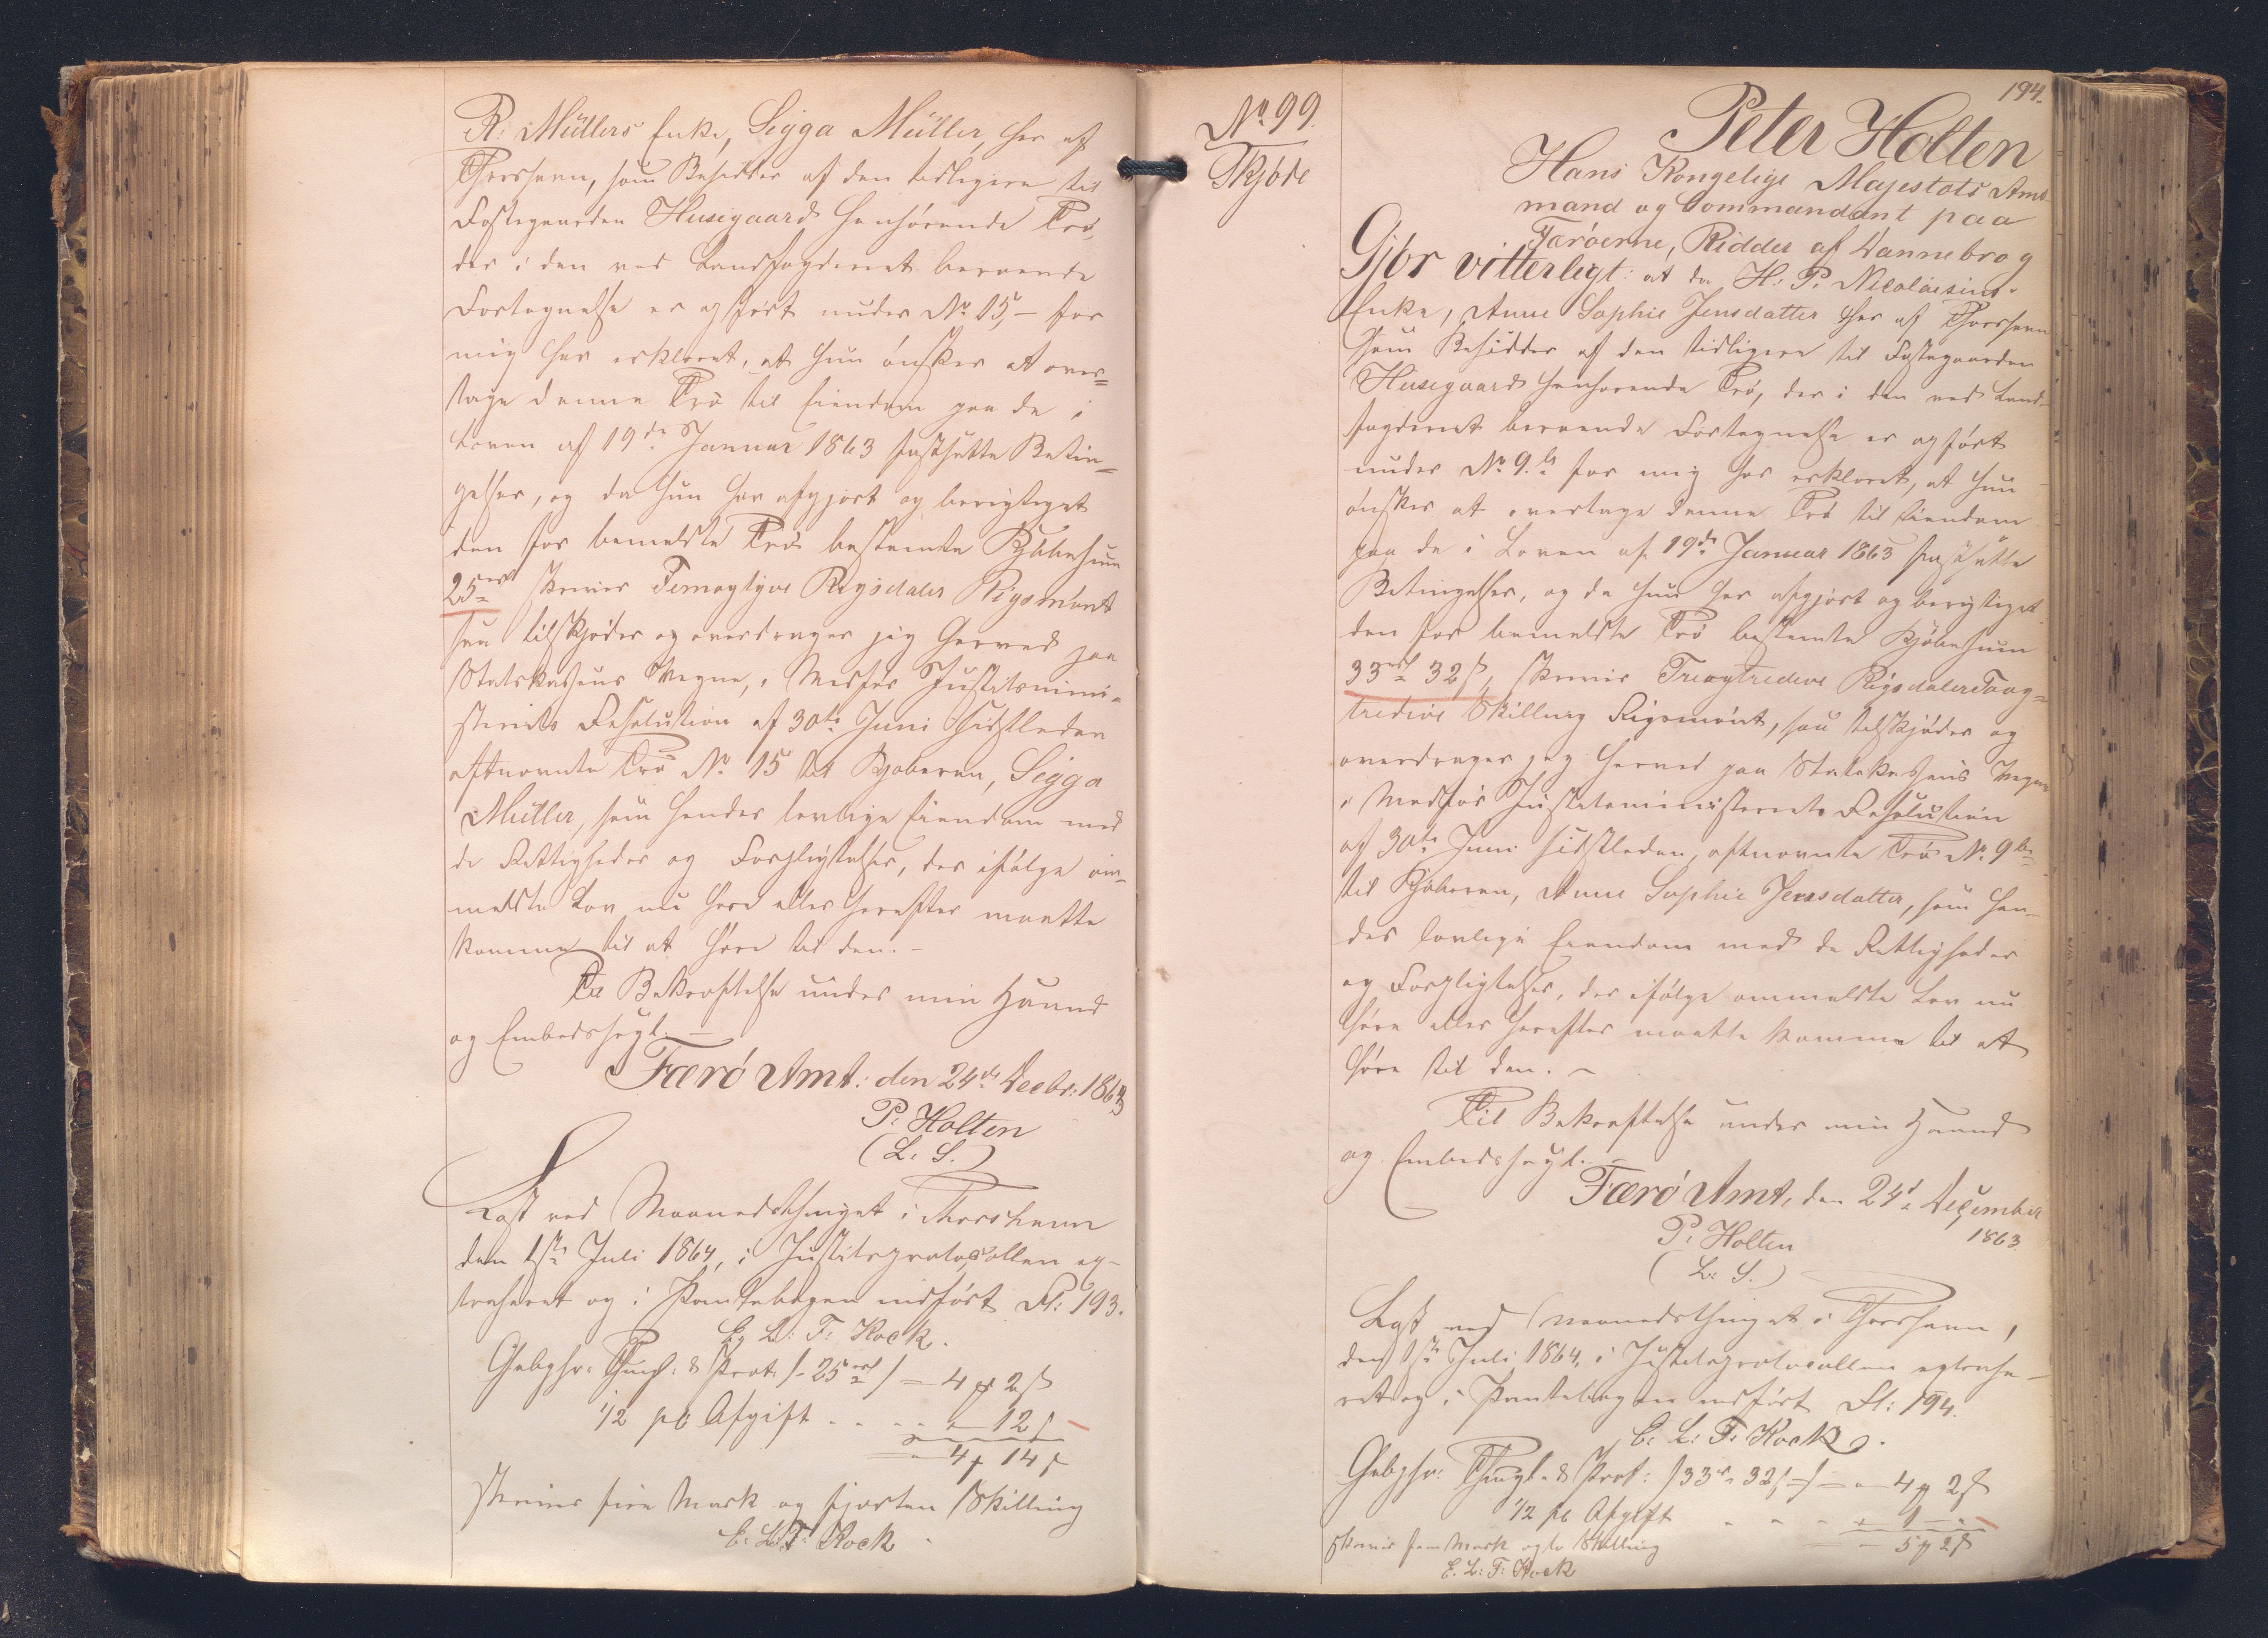 R: Müllers Enke, Sigga Müller, her af
Thorshavn, som Besidder af den tidligere til
Fæstegaarden Husegaard henhørende Trø,
der i den ved Landfogderiet beroende
Fortegnelse er opført under No 15, – for
mig har erklæret, at hun ønsker at over=
tage denne Trø til Eiendom paa de i
Loven af 19de Januar 1863 fastsatte Betin=
gelser, og da hun har afgjort og berigtiget
den for bemeldte Trø bestemte Kjøbesum
25rd skriver Femogtyve Rigsdaler Rigsmønt
saa tilskjøder og overdrager jeg herved paa
Statskassens Vegne, i Medfør Justitsmini-
steriets Resolution af 30te Juni sidstleden
oftnævnte Trø No 15 til Kjøberen, Sigga
Müller, som hendes lovlige Eiendom med
de Rettigheder og Forpligtelser, der ifølge om-
meldte Lov nu høre eller herefter maatte
komme til at høre til den. –
Til Bekræftelse under min Haand
og Embedssegl. –
Færø Amt: den 24de Decbr: 1863
P: Holten
(L: S.)
Læst ved Maanedsthinget i Thorshavn
den 1ste Juli 1864, i Justitsprotocollen ex-
traheret og i Pantebogen indført Fl: 193.
E: L: F: Kock.
Gebyhr: Thingl: & Prot: /-25rd/ – 4 ℔ 2 ß
1/2 pC Afgift . . . . - 12 ß
- 4 ℔ 14 ß
skriver fire Mark og fjorten Skilling
E: L: F: Kock
No 99.
Skjøde
194.
Peter Holten
Hans Kongelige Majestæts Amt
mand og Commandant paa
Færøerne, Ridder af Dannebrog
Gjør vitterligt: at da H: P: Nicolaisens
Enke, Anne Sophie Jensdatter her af Thorshavn
som Besidder af den tidligere til Fæstegaarden
Husegaard henhørende Trø, der i den ved Land-
fogderiet beroende Fortegnelse er opført
under No 9.b for mig har erklæret, at hun
ønsker at overtage denne Trø til Eiendom
paa de i Loven af 19de Januar 1863 fastsatte
Betingelser, og da hun har afgjort og berigtiget
den for bemeldte Trø bestemte Kjøbesum
33rd 32 ß, skriver Treogtredive Rigsdaler Toog=
tredive Skilling Rigsmønt, saa tilskjøder og
overdrager jeg herved paa Statskassens Vegne
i Medfør Justitsministeriets Resolution
af 30te Juni sidstleden, oftnævnte Trø No 9b
til Kjøberen, Anne Sophie Jensdatter, som hen-
des lovlige Eiendom med de Rettigheder
og Forpligtelser, der ifølge ommeldte Lov nu
høre eller herefter maatte komme til at
høre til den. –
Til Bekræftelse under min Haand
og Embedssegl. –
Færø Amt, den 24d December
1863
P: Holten
(L: S.)
Læst ved Maanedsthinget i Thorshavn,
den 1ste Juli 1864, i Justitsprotocollen extrahe-
ret og i Pantebogen indført Fl: 194.
E: L: F: Kock.
Gebyhr: Thingl. & Prot: /33rd 32 ß/ – - 4 ℔ 2 ß
1/2 pC Afgift - - - - 1 - -
skriver fem Mark og to Skilling - 5 ℔ 2 ß
E. L: F: Kock